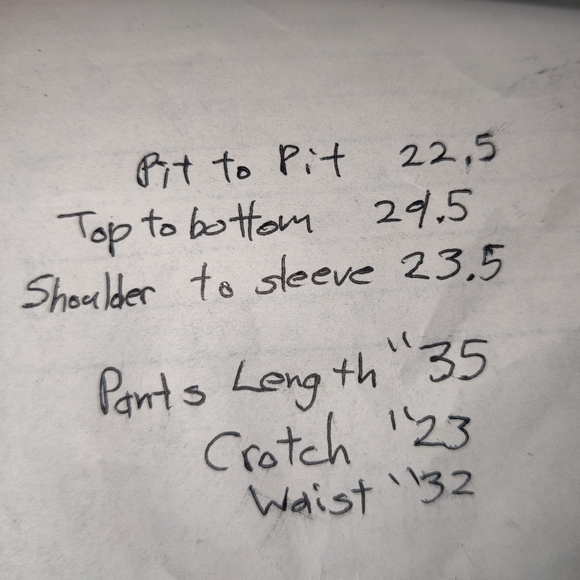 Pit to Pit 22.5
Top to bottom 29.5
Shoulder to sleeve 23.5
Pants Length "35
Crotch "23
Waist "32